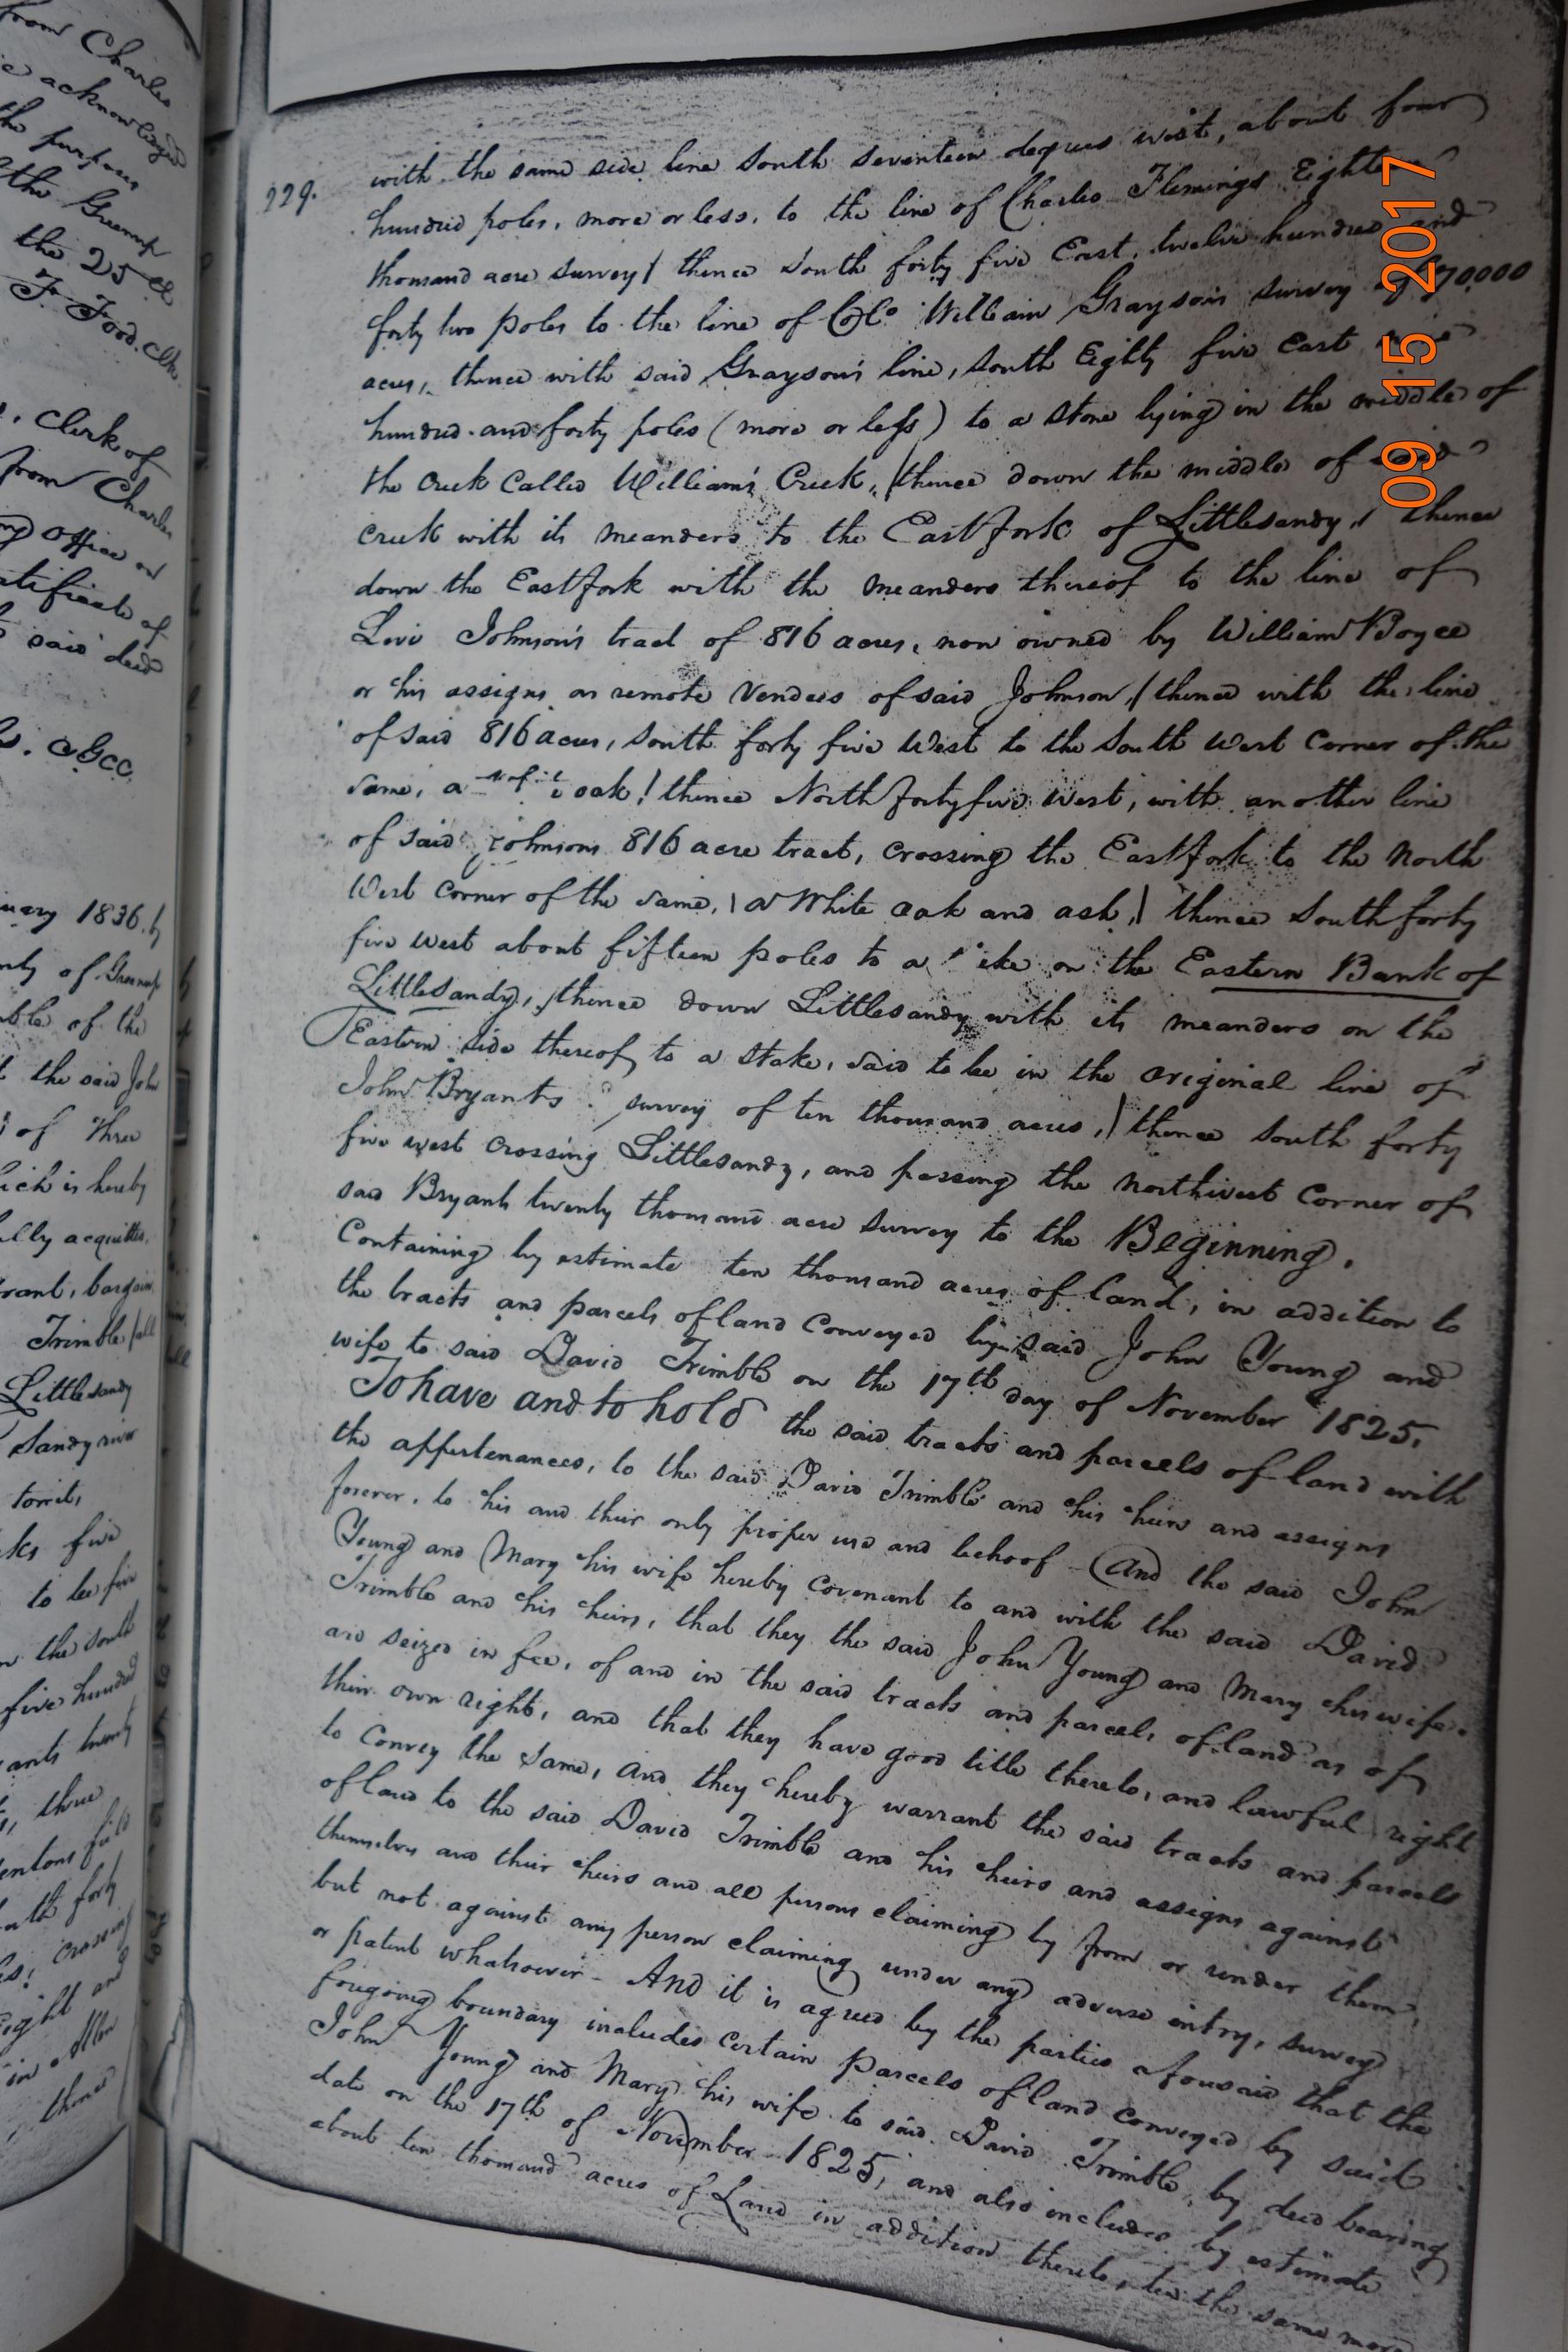 from Charles
acknowledged
the purposes
the Greenup
the 25th
F. Food. Clk.
Clerk of
from Charles
office
certificate of
said deed
1836. by
of Greenup
of the
the said John
of Three
which is hereby
fully acquitted,
grant, bargain
Trimble
Littlesandy
Sandy river
five
to be five
the south
five hundred
twenty
forty
crossing
eight and
in
thence
229.
with the same side line South Seventeen degrees west, about four
hundred poles, more or less, to the line of Charles Flemings Eighteen
thousand acre survey / thence South forty five East, twelve hundred and
forty two poles to the line of Colo William Grayson's survey of 70,000
acres, thence with said Grayson's line, South Eighty five East
hundred and forty poles (more or less) to a stone lying in the middle of
the Creek Called William's Creek, / thence down the middle of said
creek with its meanders to the East fork of Littlesandy, / thence
down the East fork with the meanders thereof to the line of
Levi Johnson's tract of 816 acres, now owned by William Boyce
or his assigns as remote Vendees of said Johnson, / thence with the line
of said 816 acres, South forty five West to the South West Corner of the
same, a oak / thence North forty five West, with another line
of said Johnsons 816 acre tract, crossing the East fork to the North
West Corner of the same, \ a White oak and ash, \ thence South forty
five west about fifteen poles to a on the Eastern Bank of
Littlesandy, / thence down Littlesandy with its meanders on the
Eastern side thereof, to a stake, said to be in the original line of
John Bryants survey of ten thousand acres, \ thence South forty
five west crossing Littlesandy, and passing the northwest Corner of
said Bryants twenty thousand acre survey to the Beginning.
Containing by estimate ten thousand acres of land, in addition to
the tracts and parcels of land Conveyed by said John Young and
wife to said David Trimble on the 17th day of November 1825.
To have and to hold the said tracts and parcels of land with
the appertenances, to the said David Trimble and his heirs and assigns
forever, to his and their only proper use and behoof - And the said John
Young and Mary his wife hereby covenant to and with the said David
Trimble and his heirs, that they the said John Young and Mary his wife
are seized in fee, of and in the said tracts and parcels of land as of
their own right, and that they have good title thereto, and lawful right
to convey the same, and they hereby warrant the said tracts and parcels
of land to the said David Trimble and his heirs and assigns against
themselves and their heirs and all persons claiming by from or under them,
but not against any person claiming under any adverse entry, survey
or patent whatsoever - And it is agreed by the parties aforesaid that the
foregoing boundary includes certain parcels of land conveyed by said
John Young and Mary his wife to said David Trimble, by deed bearing
date on the 17th of November 1825, and also includes by estimate
about ten thousand acres of Land in addition thereto, be the same more
09 15 2017